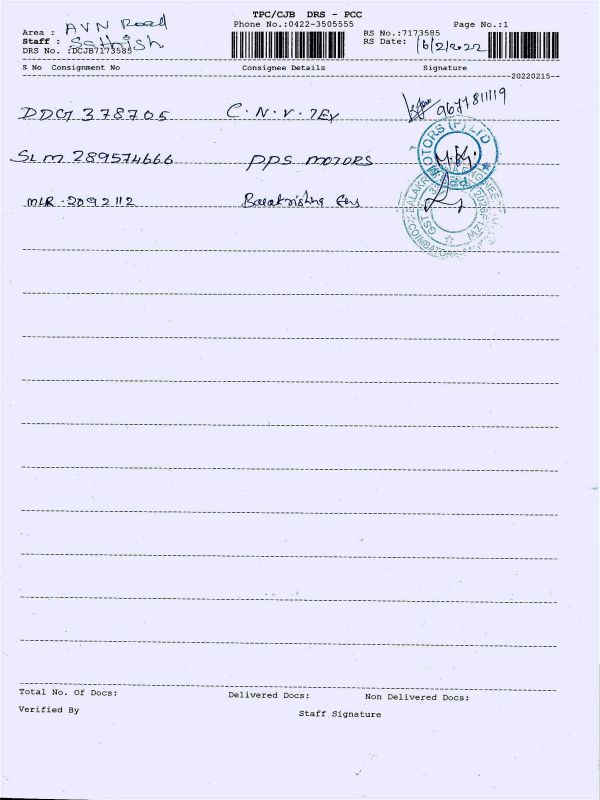 TPC/CJB DRS - PCC
Phone No.:0422-3505555 Page No.:1
Area : AVN Road
Staff : Sathish
DRS No. :DCJB7173585
RS No.:7173585
RS Date: 16/2/2022
S No Consignment No Consignee Details Signature
20220215
DDG 378705 C.N.V. TEX 9677811119
SLM 289574666 PPS MOTORS
MLR - 2092112 Balakrishna Eng
MOTORS (P) LTD
COIMBATORE
GST
Total No. Of Docs: Delivered Docs: Non Delivered Docs:
Verified By Staff Signature